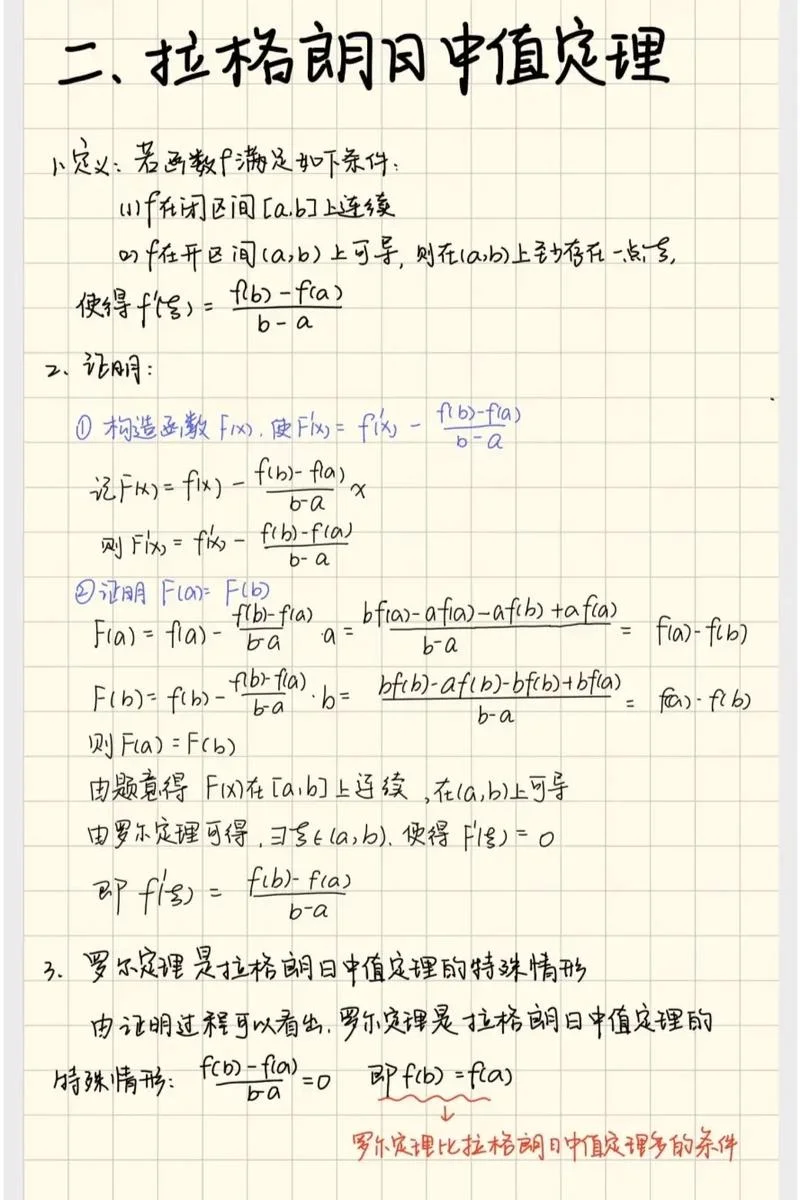 二、拉格朗日中值定理
1、定义：若函数f满足如下条件：
(1) f在闭区间[a,b]上连续
(2) f在开区间(a,b)上可导，则在(a,b)上至少存在一点ξ，
使得f'(ξ) = \frac{f(b)-f(a)}{b-a}
2、证明：
① 构造函数F(x)，使F'(x) = f'(x) - \frac{f(b)-f(a)}{b-a}
记F(x) = f(x) - \frac{f(b)-f(a)}{b-a}x
则F'(x) = f'(x) - \frac{f(b)-f(a)}{b-a}
② 证明 F(a) = F(b)
F(a) = f(a) - \frac{f(b)-f(a)}{b-a}·a = \frac{bf(a)-af(a)-af(b)+af(a)}{b-a} = f(a)-f(b)
F(b) = f(b) - \frac{f(b)-f(a)}{b-a}·b = \frac{bf(b)-af(b)-bf(b)+bf(a)}{b-a} = f(a)-f(b)
则F(a) = F(b)
由题意得 F(x)在[a,b]上连续，在(a,b)上可导
由罗尔定理可得，∃ξ∈(a,b)，使得F'(ξ) = 0
即 f'(ξ) = \frac{f(b)-f(a)}{b-a}
3、罗尔定理是拉格朗日中值定理的特殊情形
由证明过程可以看出，罗尔定理是拉格朗日中值定理的
特殊情形：\frac{f(b)-f(a)}{b-a} = 0 即f(b) = f(a)
↓
罗尔定理比拉格朗日中值定理多的条件